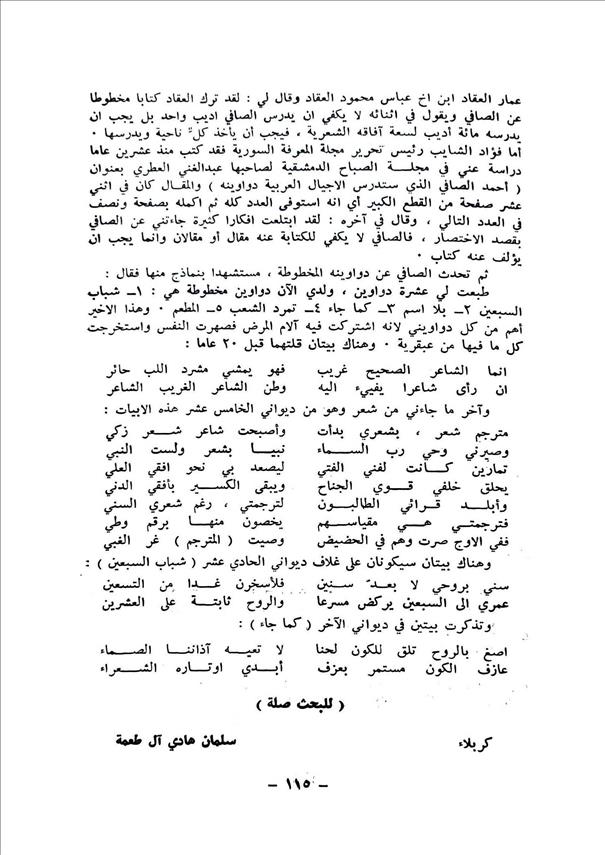 عمار العقاد ابن اخ عباس محمود العقاد وقال لي : لقد ترك العقاد كتابا مخطوطا
عن الصافي ويقول في اثنائه لا يكفي ان يدرس الصافي اديب واحد بل يجب ان
يدرسه مائة أديب لسعة آفاقه الشعرية ، فيجب أن يأخذ كلٌ ناحية ويدرسها ٠
أما فؤاد الشايب رئيس تحرير مجلة المعرفة السورية فقد كتب منذ عشرين عاما
دراسة عني في مجلة الصباح الدمشقية لصاحبها عبدالغني العطري بعنوان
( أحمد الصافي الذي ستدرس الاجيال العربية دواوينه ) والمقال كان في اثني
عشر صفحة من القطع الكبير أي انه استوفى العدد كله ثم اكمله بصفحة ونصف
في العدد التالي ، وقال في آخره : لقد ابتلعت افكارا كثيرة جاءتني عن الصافي
بقصد الاختصار ، فالصافي لا يكفي للكتابة عنه مقال أو مقالان وانما يجب ان
يؤلف عنه كتاب ٠
ثم تحدث الصافي عن دواوينه المخطوطة ، مستشهدا بنماذج منها فقال :
طبعت لي عشرة دواوين ، ولدي الآن دواوين مخطوطة هي : ١ـ شباب
السبعين ٢ـ بلا اسم ٣ـ كما جاء ٤ـ تمرد الشعب ٥ـ المطعم ٠ وهذا الاخير
أهم من كل دواويني لانه اشتركت فيه آلام المرض فصهرت النفس واستخرجت
كل ما فيها من عبقرية ٠ وهناك بيتان قلتهما قبل ٢٠ عاما :
انما الشاعر الصحيح غريب فهو يمشي مشرد اللب حائر
ان رأى شاعرا يفييء اليه وطن الشاعر الغريب الشاعر
وآخر ما جاءني من شعر وهو من ديواني الخامس عشر هذه الابيات :
مترجم شعر ، بشعري بدأت وأصبحت شاعر شعر زكي
وصيرني وحي رب السماء نبيا بشعر ولست النبي
تمارين كانت لفني الفتي ليصعد بي نحو افقي العلي
يحلق خلفي قوي الجناح ويبقى الكسير بأفقي الدني
وأبلد قرائي الطالبون لترجمتي ، رغم شعري السني
فترجمتي هي مقياسهم يخصون منها برقم وطي
ففي الاوج صرت وهم في الحضيض وصيت ( المترجم ) غر الغبي
وهناك بيتان سيكونان على غلاف ديواني الحادي عشر ( شباب السبعين ) :
سني بروحي لا بعدّ سنين فلأسخرن غدا من التسعين
عمري الى السبعين يركض مسرعا والروح ثابتة على العشرين
وتذكرت بيتين في ديواني الآخر ( كما جاء ) :
اصغ بالروح تلق للكون لحنا لا تعيه آذاننا الصماء
عازف الكون مستمر بعزف أبدي اوتاره الشعراء
( للبحث صلة )
كربلاء سلمان هادي آل طعمة
ـ ١١٥ ـ